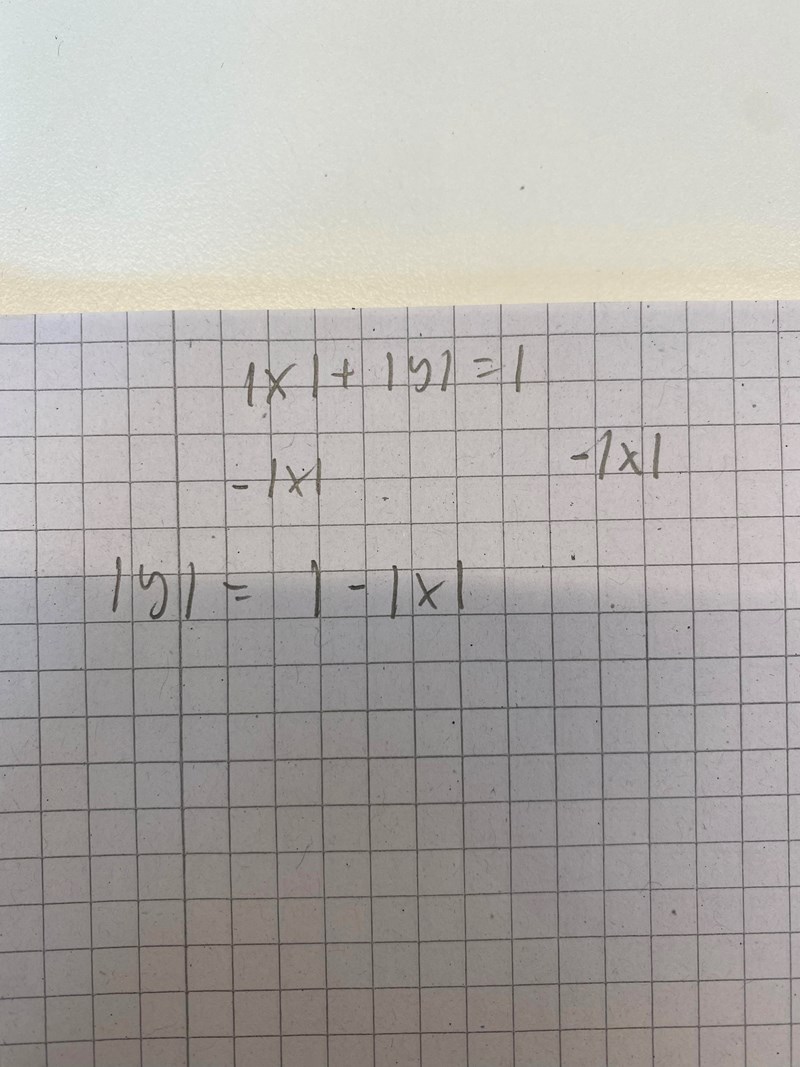 |x| + |y| = 1
-|x| -|x|
|y| = 1 - |x|